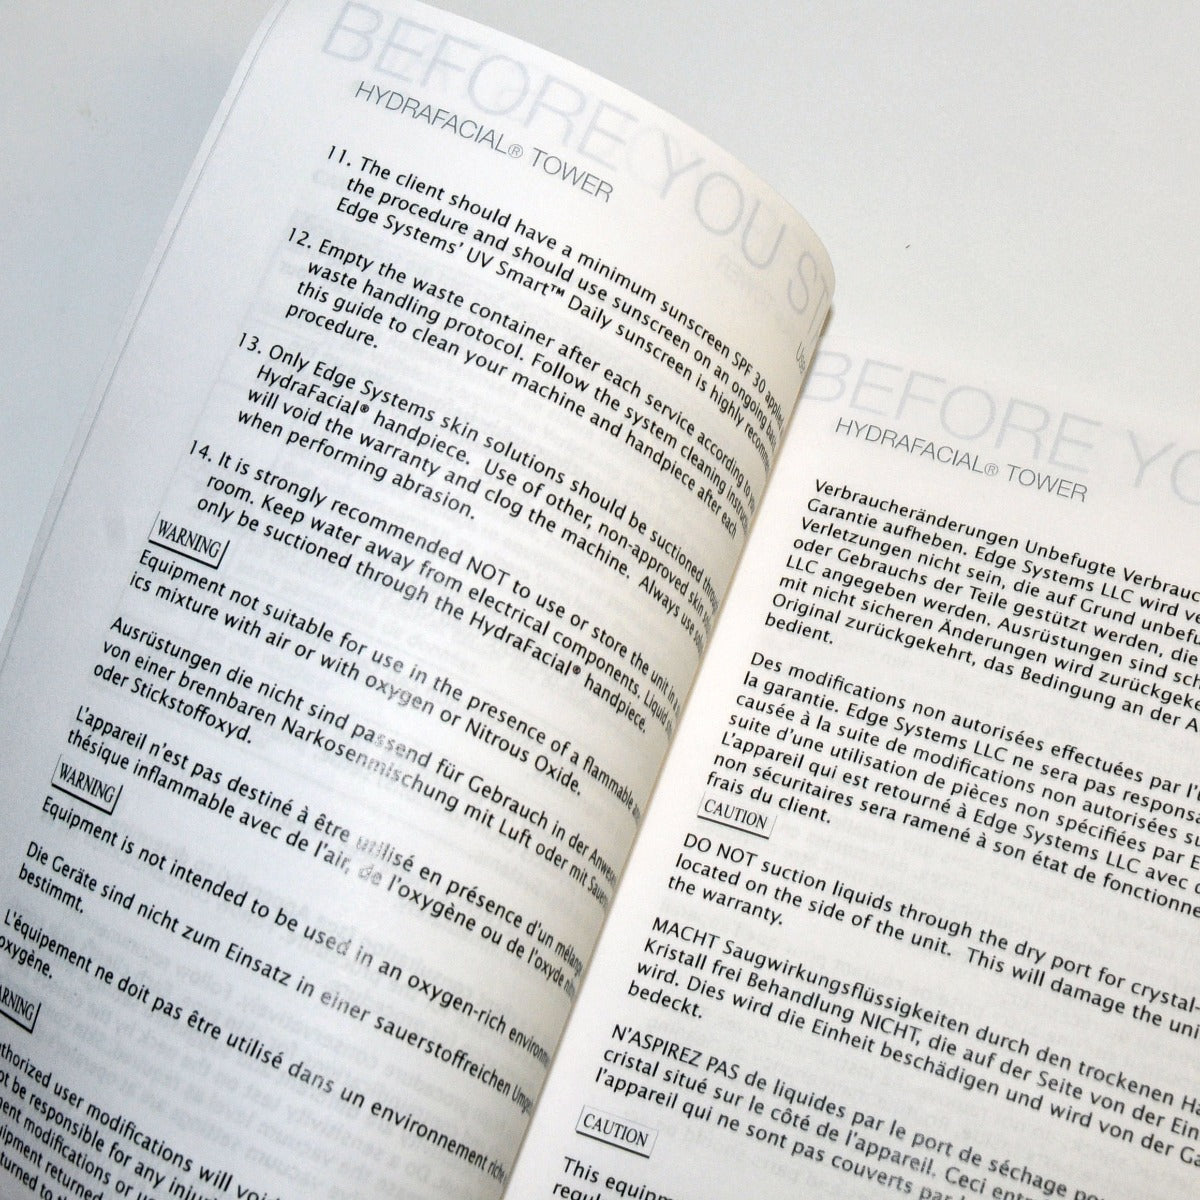 BEFORE YOU ST
HYDRAFACIAL® TOWER
11. The client should have a minimum sunscreen SPF 30 applied
the procedure and should use sunscreen on an ongoing
Edge Systems' UV Smart™ Daily sunscreen is highly
12. Empty the waste container after each service according to
waste handling protocol. Follow the system cleaning
this guide to clean your machine and handpiece after each
procedure.
13. Only Edge Systems skin solutions should be suctioned
HydraFacial® handpiece. Use of other, non-approved skin
will void the warranty and clog the machine. Always use
when performing abrasion.
14. It is strongly recommended NOT to use or store the unit in
room. Keep water away from electrical components. Liquid
only be suctioned through the HydraFacial® handpiece.
WARNING
Equipment not suitable for use in the presence of a flammable
ics mixture with air or with oxygen or Nitrous Oxide.
Ausrüstungen die nicht sind passend für Gebrauch in der
von einer brennbaren Narkosenmischung mit Luft oder mit
oder Stickstoffoxyd.
L'appareil n'est pas destiné à être utilisé en présence d'un
thésique inflammable avec de l'air, de l'oxygène ou de l'oxyde
WARNING
Equipment is not intended to be used in an oxygen-rich
Die Geräte sind nicht zum Einsatz in einer sauerstoffreichen
bestimmt.
L'équipement ne doit pas être utilisé dans un environnement
oxygène.
ARNING
thorized user modifications will
ot be responsible for any
ment modifications or
uipment returned
turned to
BEFORE YO
HYDRAFACIAL® TOWER
Verbraucheränderungen Unbefugte
Garantie aufheben. Edge Systems LLC wird
Verletzungen nicht sein, die auf Grund
oder Gebrauchs der Teile gestützt werden, die
LLC angegeben werden. Ausrüstungen sind
mit nicht sicheren Änderungen wird
Original zurückgekehrt, das Bedingung an der
bedient.
Des modifications non autorisées effectuées par
la garantie. Edge Systems LLC ne sera pas
causée à la suite de modifications non autorisées
suite d'une utilisation de pièces non spécifiées par
L'appareil qui est retourné à Edge Systems LLC avec
non sécuritaires sera ramené à son état de
frais du client.
CAUTION
DO NOT suction liquids through the dry port for crystal-
located on the side of the unit. This will damage the
the warranty.
MACHT Saugwirkungsflüssigkeiten durch den trockenen
Kristall frei Behandlung NICHT, die auf der Seite von der
wird. Dies wird die Einheit beschädigen und wird von der
bedeckt.
N'ASPIREZ PAS de liquides par le port de séchage
cristal situé sur le côté de l'appareil. Ceci
l'appareil qui ne sont pas couverts par
CAUTION
This